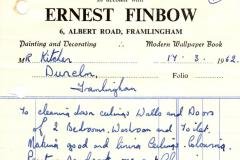 In account with
ERNEST FINBOW
6, ALBERT ROAD, FRAMLINGHAM
Painting and Decorating ∴ Modern Wallpaper Book
MR Kitcher 17 . 3 . 1962
Folio
Framlingham
To cleaning down ceilings Walls and Doors
of 2 Bedrooms. Washroom and Toilet.
Making good and lining Ceilings. Colouring